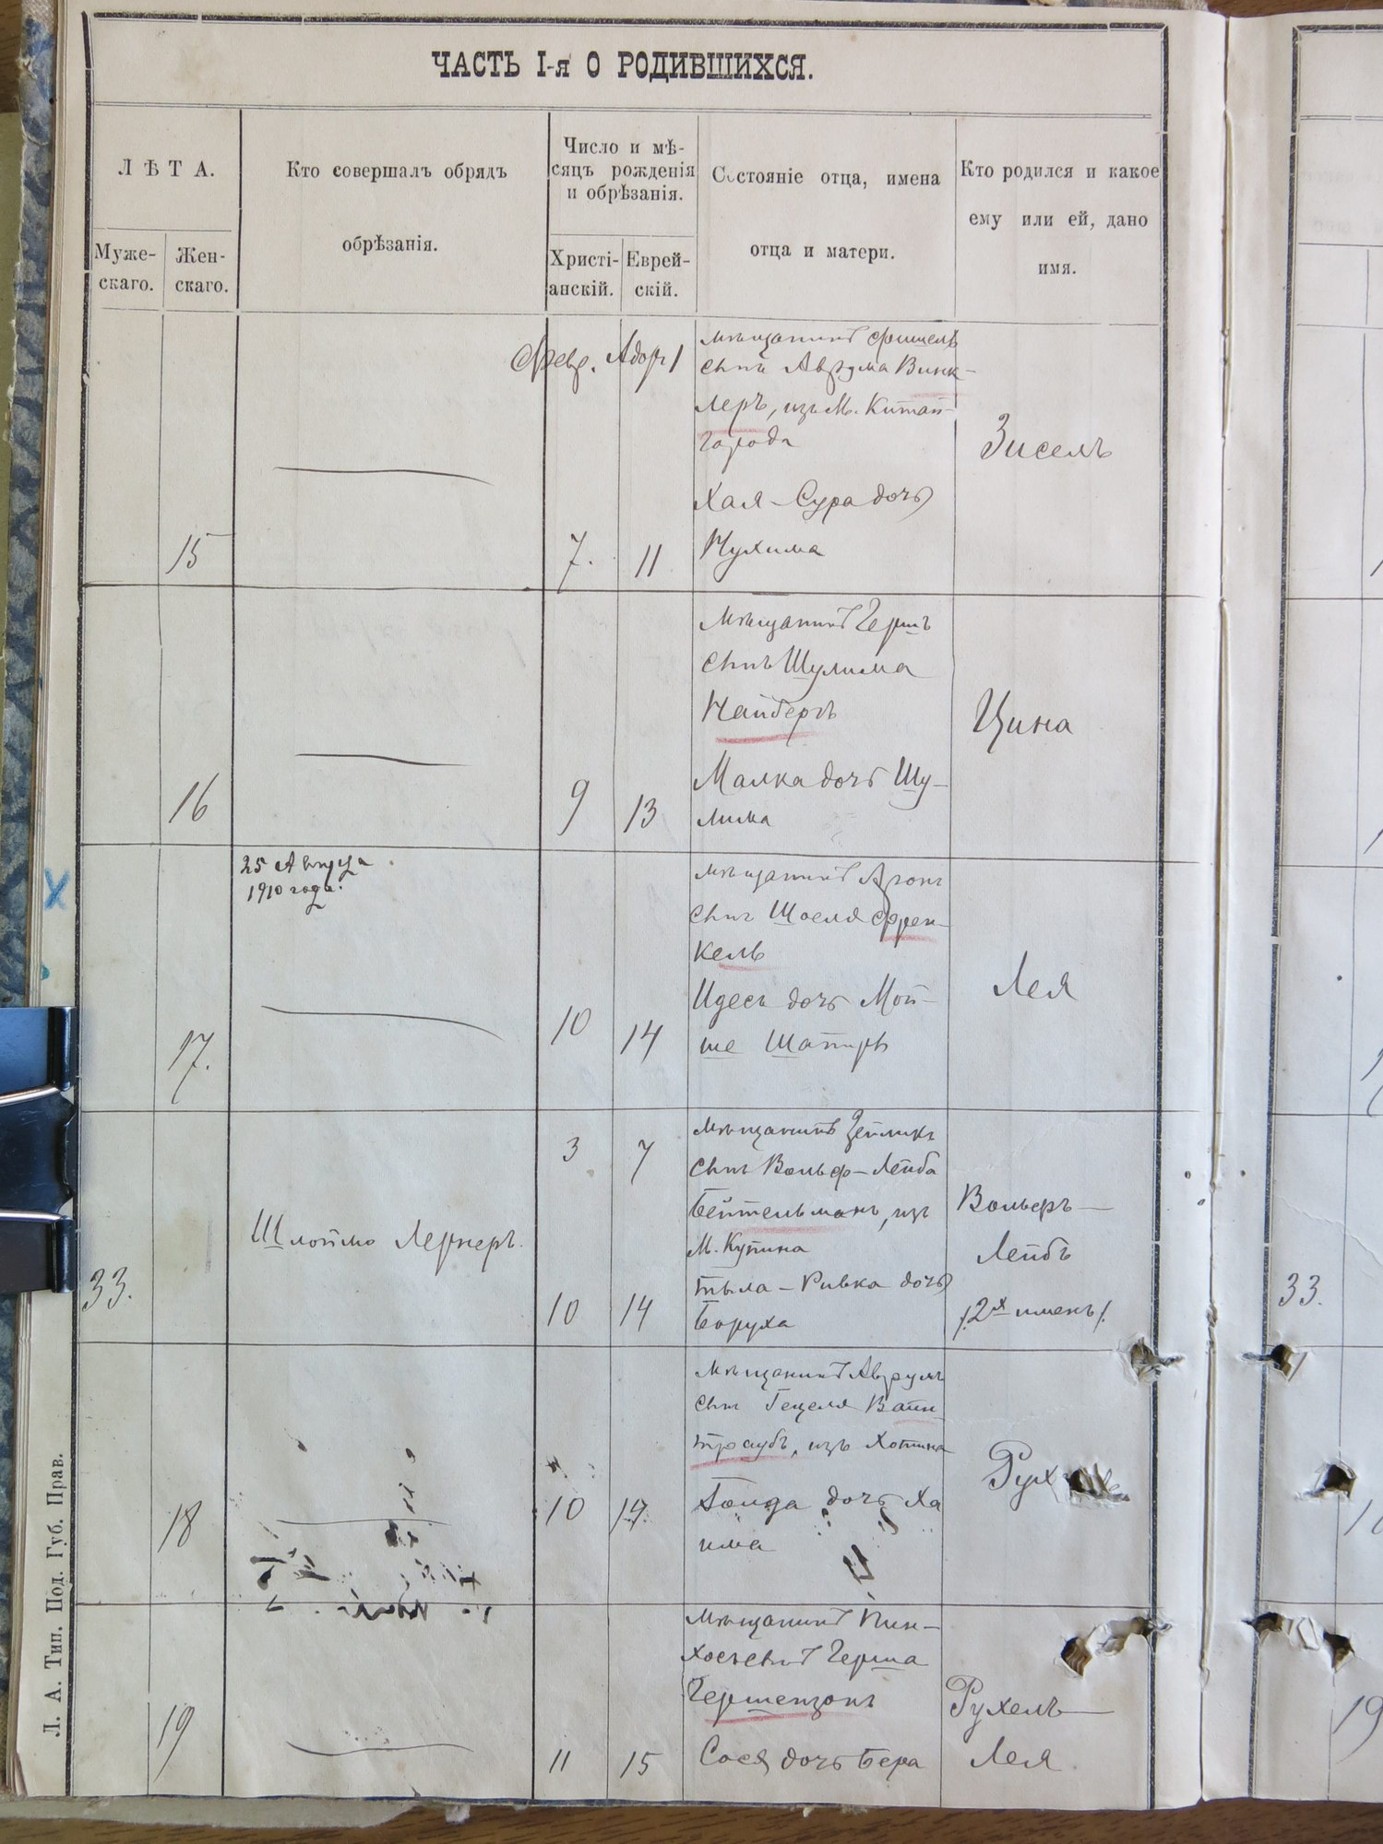 ЧАСТЬ I-я О РОДИВШИХСЯ.
ЛѢТА.
Муже-
скаго.
Жен-
скаго.
Кто совершалъ обрядъ
обрѣзанія.
Число и мѣ-
сяцъ рожденія
и обрѣзанія.
Христі-
анскій.
Еврей-
скій.
Состояніе отца, имена
отца и матери.
Кто родился и какое
ему или ей, дано
имя.
Февр. Адоръ 1
15
7. 11
мѣщанинъ Фишель
сынъ Аврума Винк-
леръ, изъ М. Китай-
города
Хая-Сура дочь
Нухима
Зисель
16
9 13
мѣщанинъ Гершъ
сынъ Шулима
Найберъ
Малка дочь Шу-
лима
Цина
25 Августа
1910 года.
17.
10 14
мѣщанинъ Аронъ
сынъ Шоеля Френ-
кель
Идесъ дочь Мой-
ше Шапиръ
Лея
33.
Шлоймо Лернеръ.
3 7
10 14
мѣщанинъ Зейликъ
сынъ Вольф-Лейба
Бейтельманъ, изъ
М. Купина
Тыла-Ривка дочь
Боруха
Вольфъ-
Лейбъ
/2х именъ/.
33.
18
10 14.
мѣщанинъ Аврумъ
сынъ Гецеля Вайн-
траубъ, изъ Хотина
Голда дочь Ха
има
19
11 15
мѣщанинъ Пин-
хосъ сынъ Герша
Гершензонъ
Сося дочь Бера
Рухель-
Лея
19
Л. А. Тип. Под. Губ. Прав.